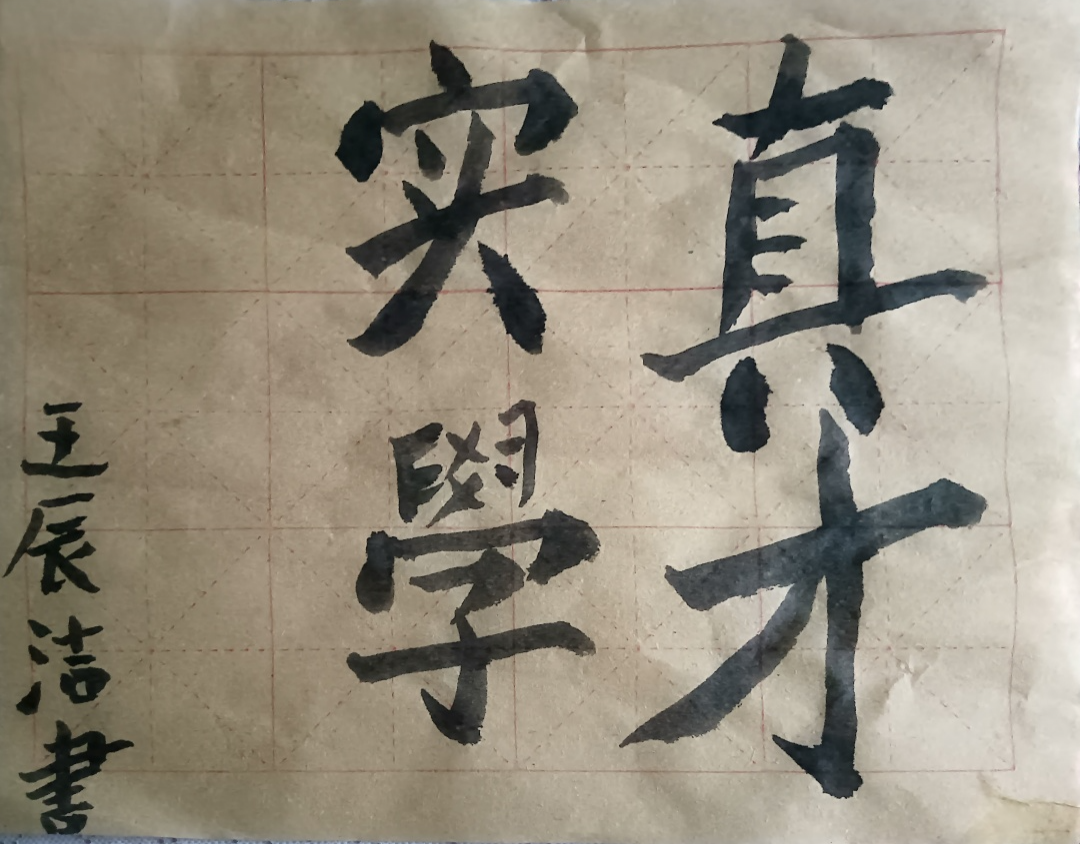 真才
实學
王辰洁書